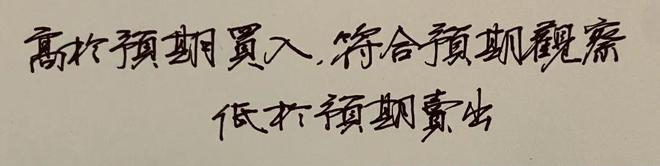 高於預期買入,符合預期觀察
低於預期賣出